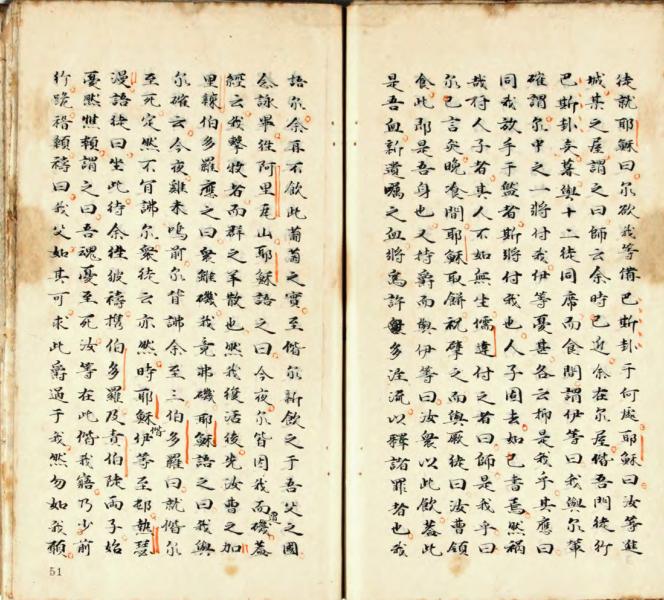 徒就耶穌曰尔欲我等備巴斯卦于何處耶穌曰汝等進
城某之屋謂之曰師云余時已近余在尔屋偕吾門徒行
巴斯卦矣暮與十二徒同席而食間謂伊等曰我與尔輩
確謂尔中之一將付我伊等憂甚各云抑是我乎其應曰
同我放手于盤者斯將付我也人子固去如已書焉然禍
哉付人子者其人不如無生儒達付之者曰師是我乎曰
尔已言矣晚飡間耶穌取餅祝擘之而與厥徒曰汝曹領
食此即是吾身也又持爵而與伊等曰汝衆以此飲蓋此
是吾血新遺囑之血將為許多淫流以釋諸罪者也我
語尔余再不飲此葡萄之實至偕尔新飲之于吾父之國
念詠畢徃阿里瓦山耶穌語之曰今夜尔皆因我而磯蓋
經云我擊牧者而群之羊散也然我復活後先汝曹之加
里辣伯多羅應之曰衆雖磯我竟弗磯耶穌語之曰我與
尔確云今夜雞未鳴前尔皆訷余至三伯多羅曰就偕尔
至死定然不肯訷尔衆徒云亦然時耶穌偕伊等至邨熱瑟
漫語徒曰坐此待余徃彼禱携伯多羅及責伯陡兩子始
憂默憔頼謂之曰吾魂憂至死汝等在此偕我寤乃少前
行跪稽顙禱曰我父如其可求此爵過于我然勿如我願
51